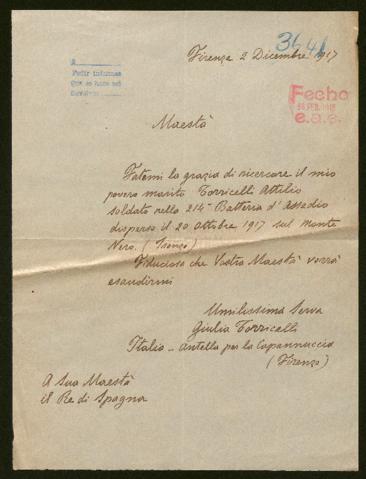 3641
Firenze 2 Dicembre 1917
Pedir informes
Fecho
e.a.e.
Maestà
Fatemi la grazia di ricercare il mio
povero marito Torricelli Attilio
soldato nella 214ª Batteria d'Assedio
disperso il 20 ottobre 1917 sul Monte
Nero. (Isonzo)
Fiduciosa che Vostra Maestà vorrà
esaudirmi
Umilissima Serva
Giulia Torricelli
Italia - Antella per la Capannuccia
(Firenze)
A Sua Maestà
il Re di Spagna